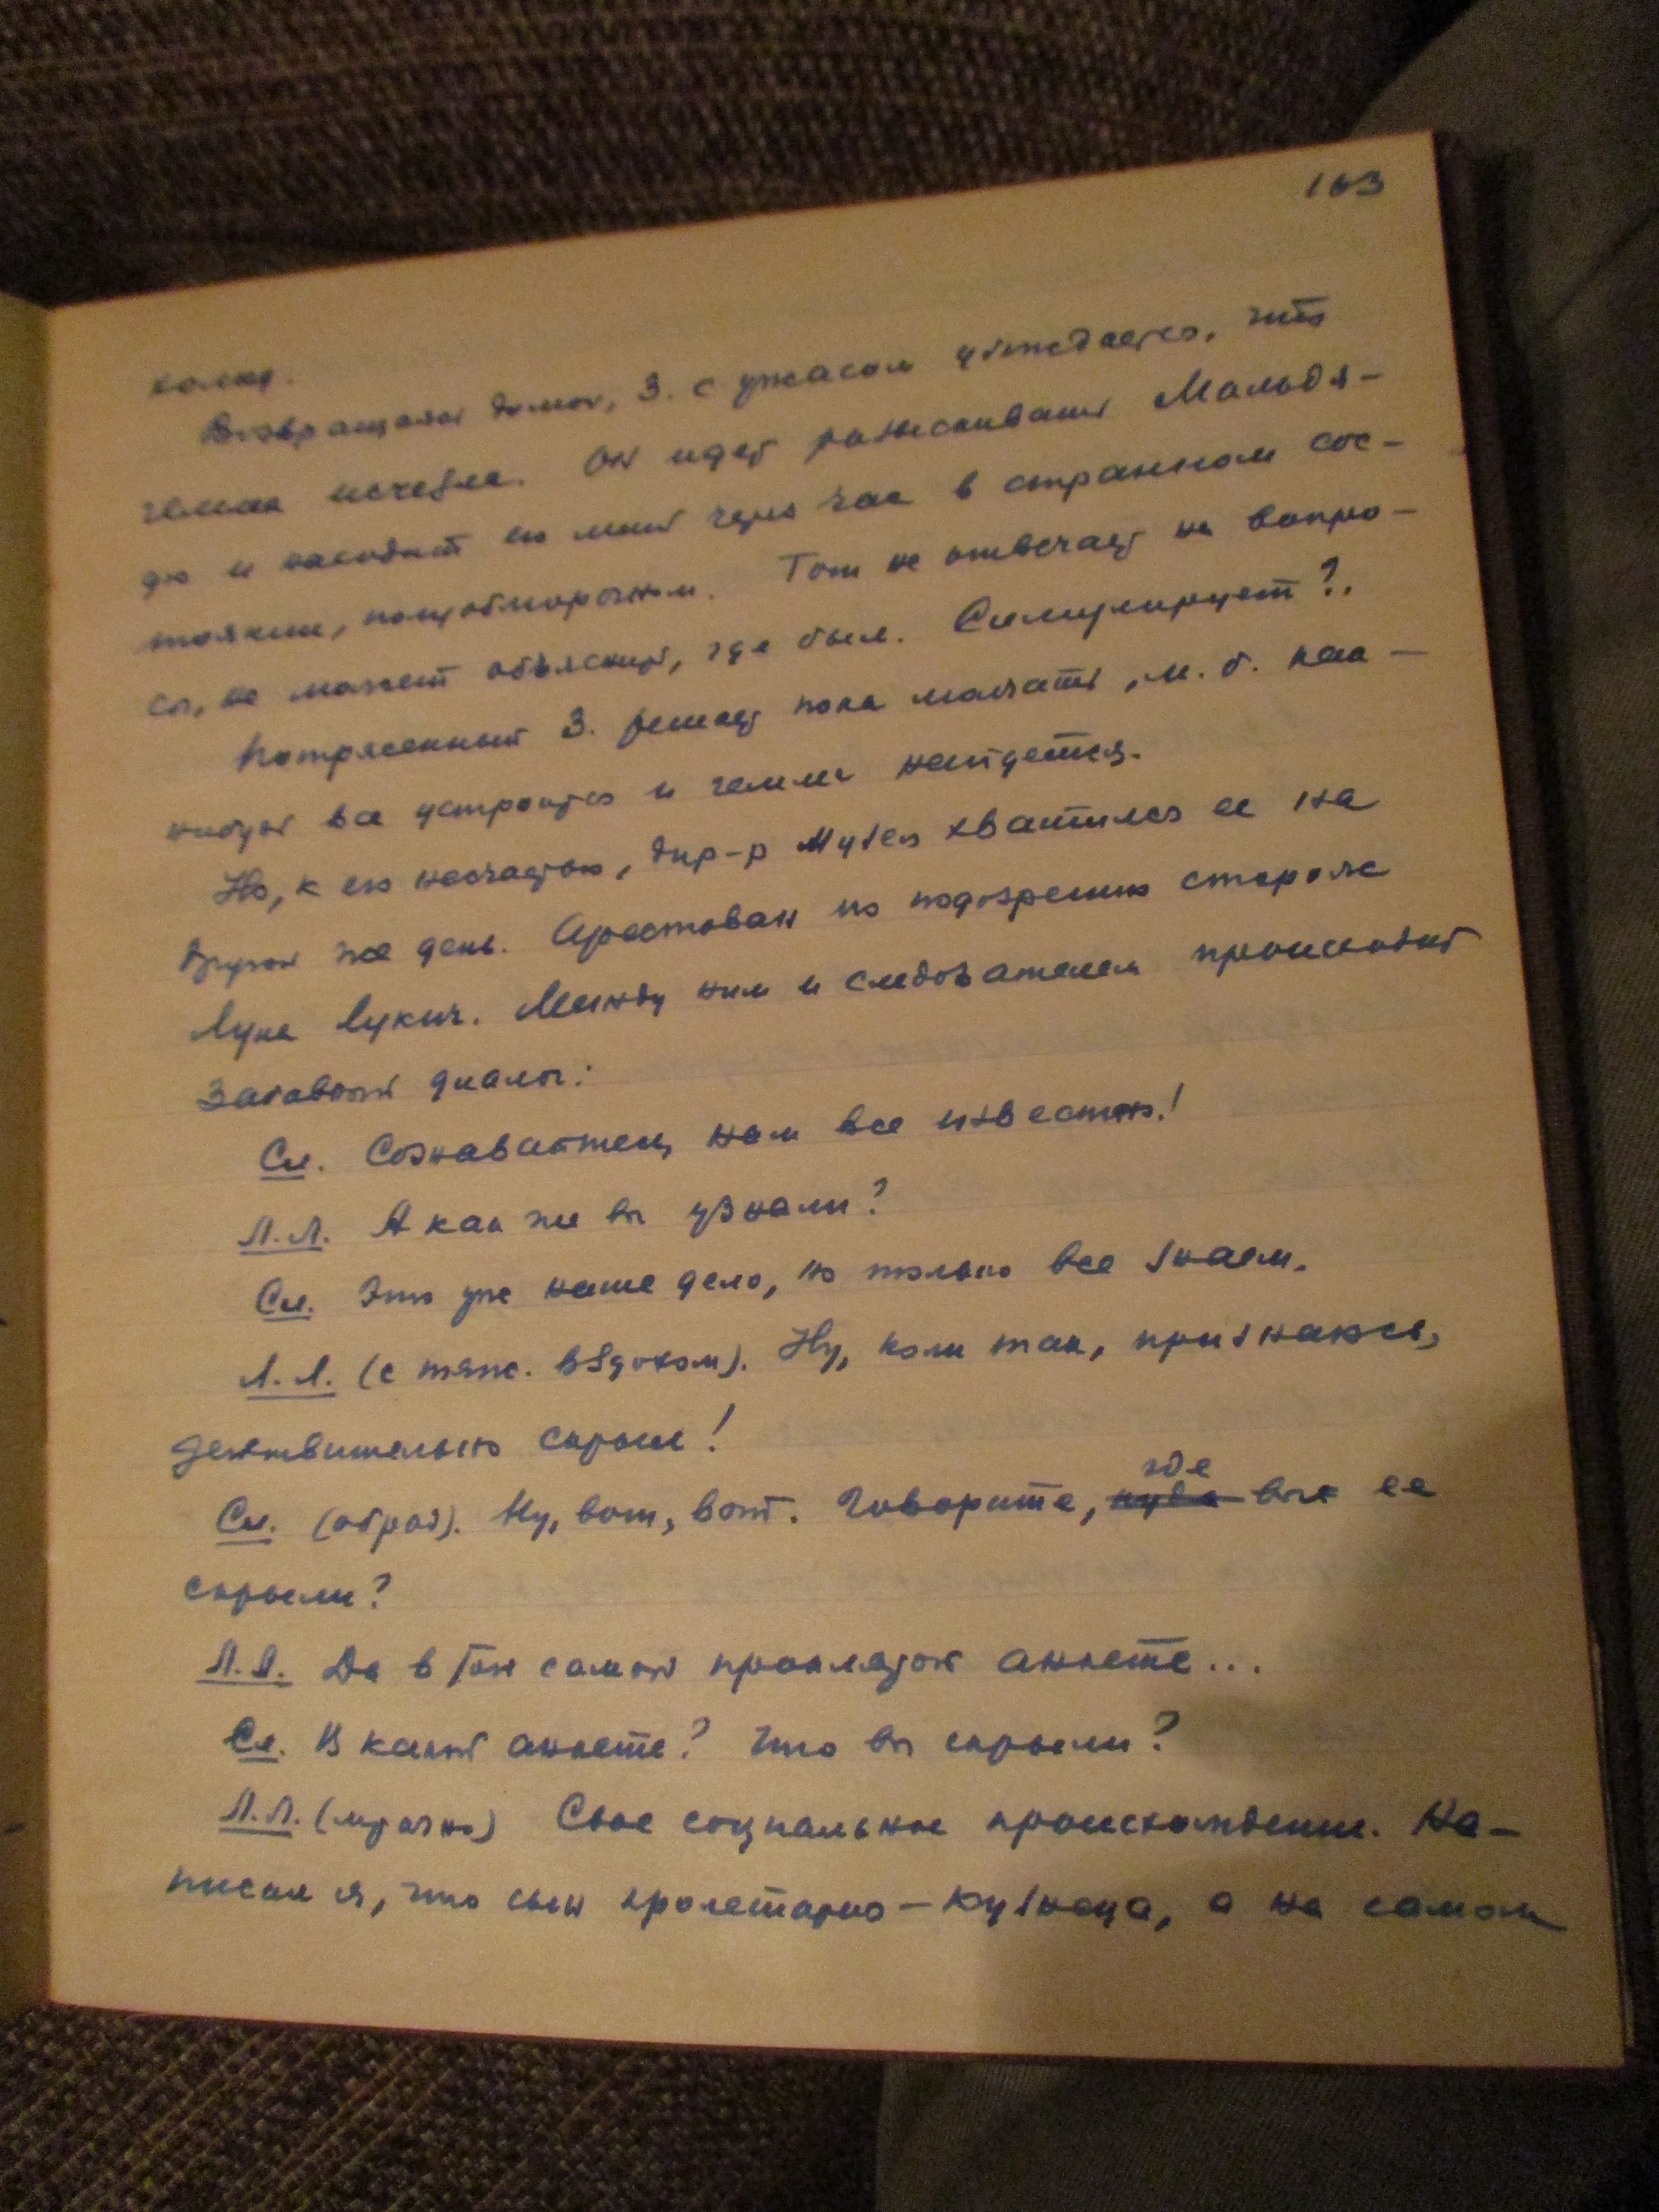 163
Возвращаясь домой, З. с ужасом убеждается, что
гемма исчезла. Он идет разыскивать Мальдя-
дю и находит его лишь через час в странном сос-
тоянии, полуобморочном. Тот не отвечает на вопро-
сы, не может объяснить, где был. Симулирует?.
Потрясенный З. решает пока молчать, м. б. как-
нибудь все устроится и гемма найдется.
Но, к его несчастью, дир-р Музея хватился ее на
другой же день. Арестован по подозрению сторож
Лука Лукич. Между ним и следователем происходит
такой диалог:
Сл. Сознавайтесь, нам все известно!
Л.Л. А как же вы узнали?
Сл. Это уже наше дело, но только все знаем.
Л.Л. (с тяж. вздохом). Ну, коли так, признаюсь,
действительно скрыл!
Сл. (обрад). Ну, вот, вот. Говорите, куда где вы ее
скрыли?
Л.Л. Да в той самой проклятой анкете...
Сл. В какой анкете? Что вы скрыли?
Л.Л. (мрачно) Свое социальное происхождение. На-
писал я, что сын пролетария-кузнеца, а на самом